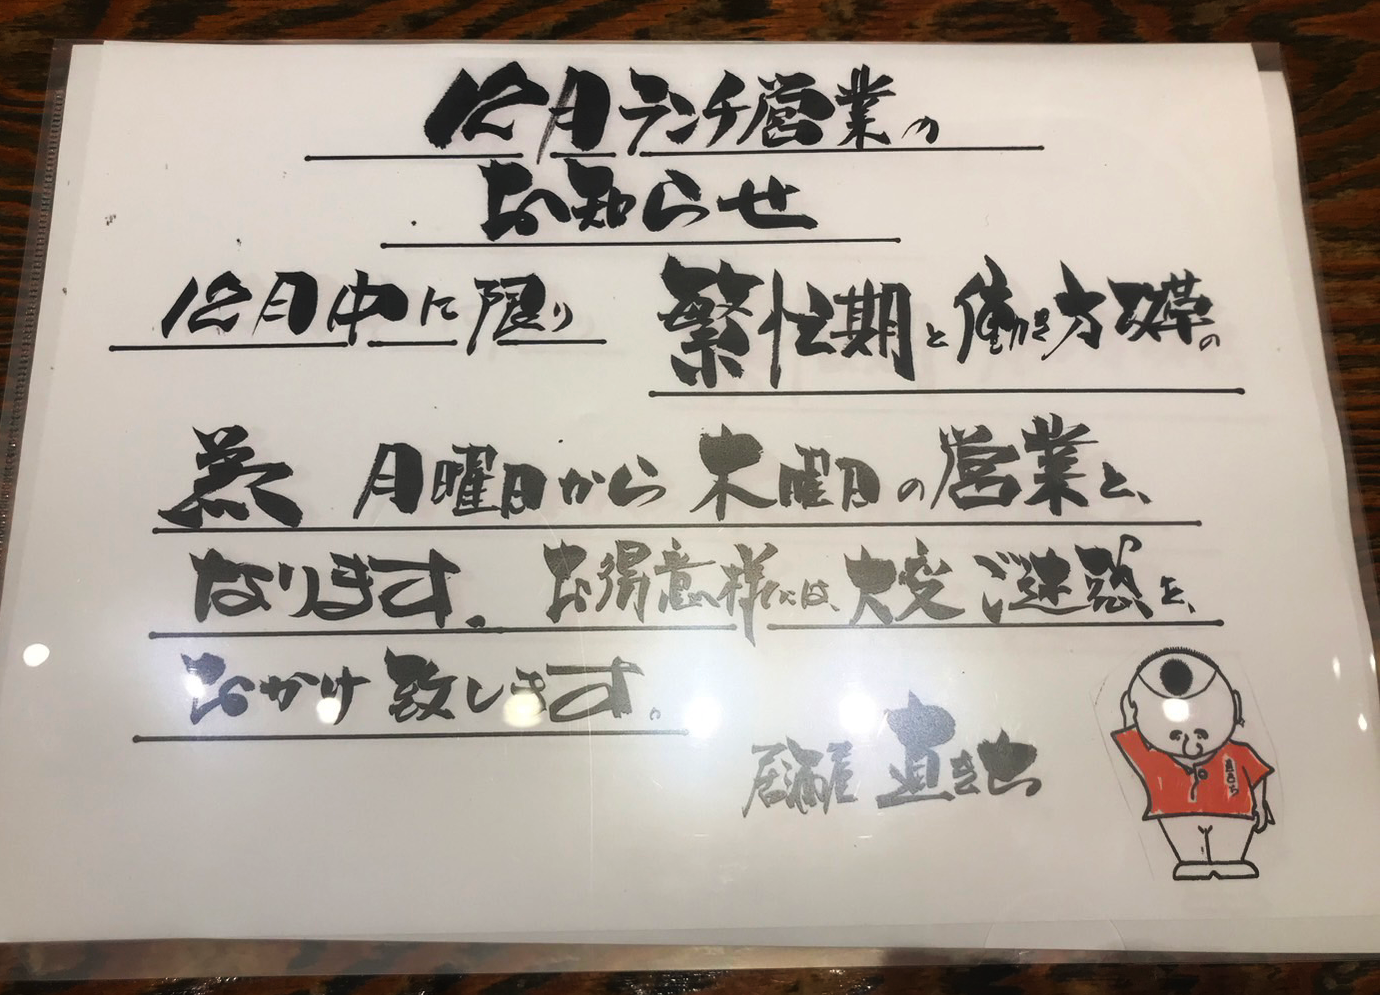 12月ランチ営業の
お知らせ
12月中に限り 繁忙期と働き方改革の
為 月曜日から木曜日の営業と、
なります。お得意様には、大変ご迷惑を、
おかけ致します。
居酒屋 直きち
直きち